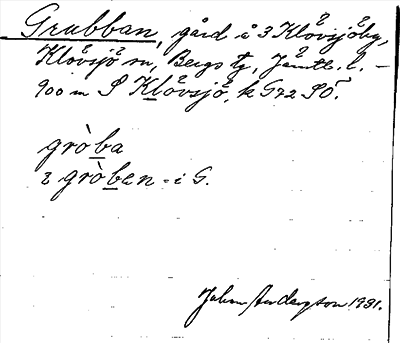 Grubban, gård å 3 Klövsjöby,
Klövsjö sn, Bergs tg, Jämtl. l. –
900 m S Klövsjö, k G72 SÖ.
gròba
i gròben - i G.
John Andersson 1931.